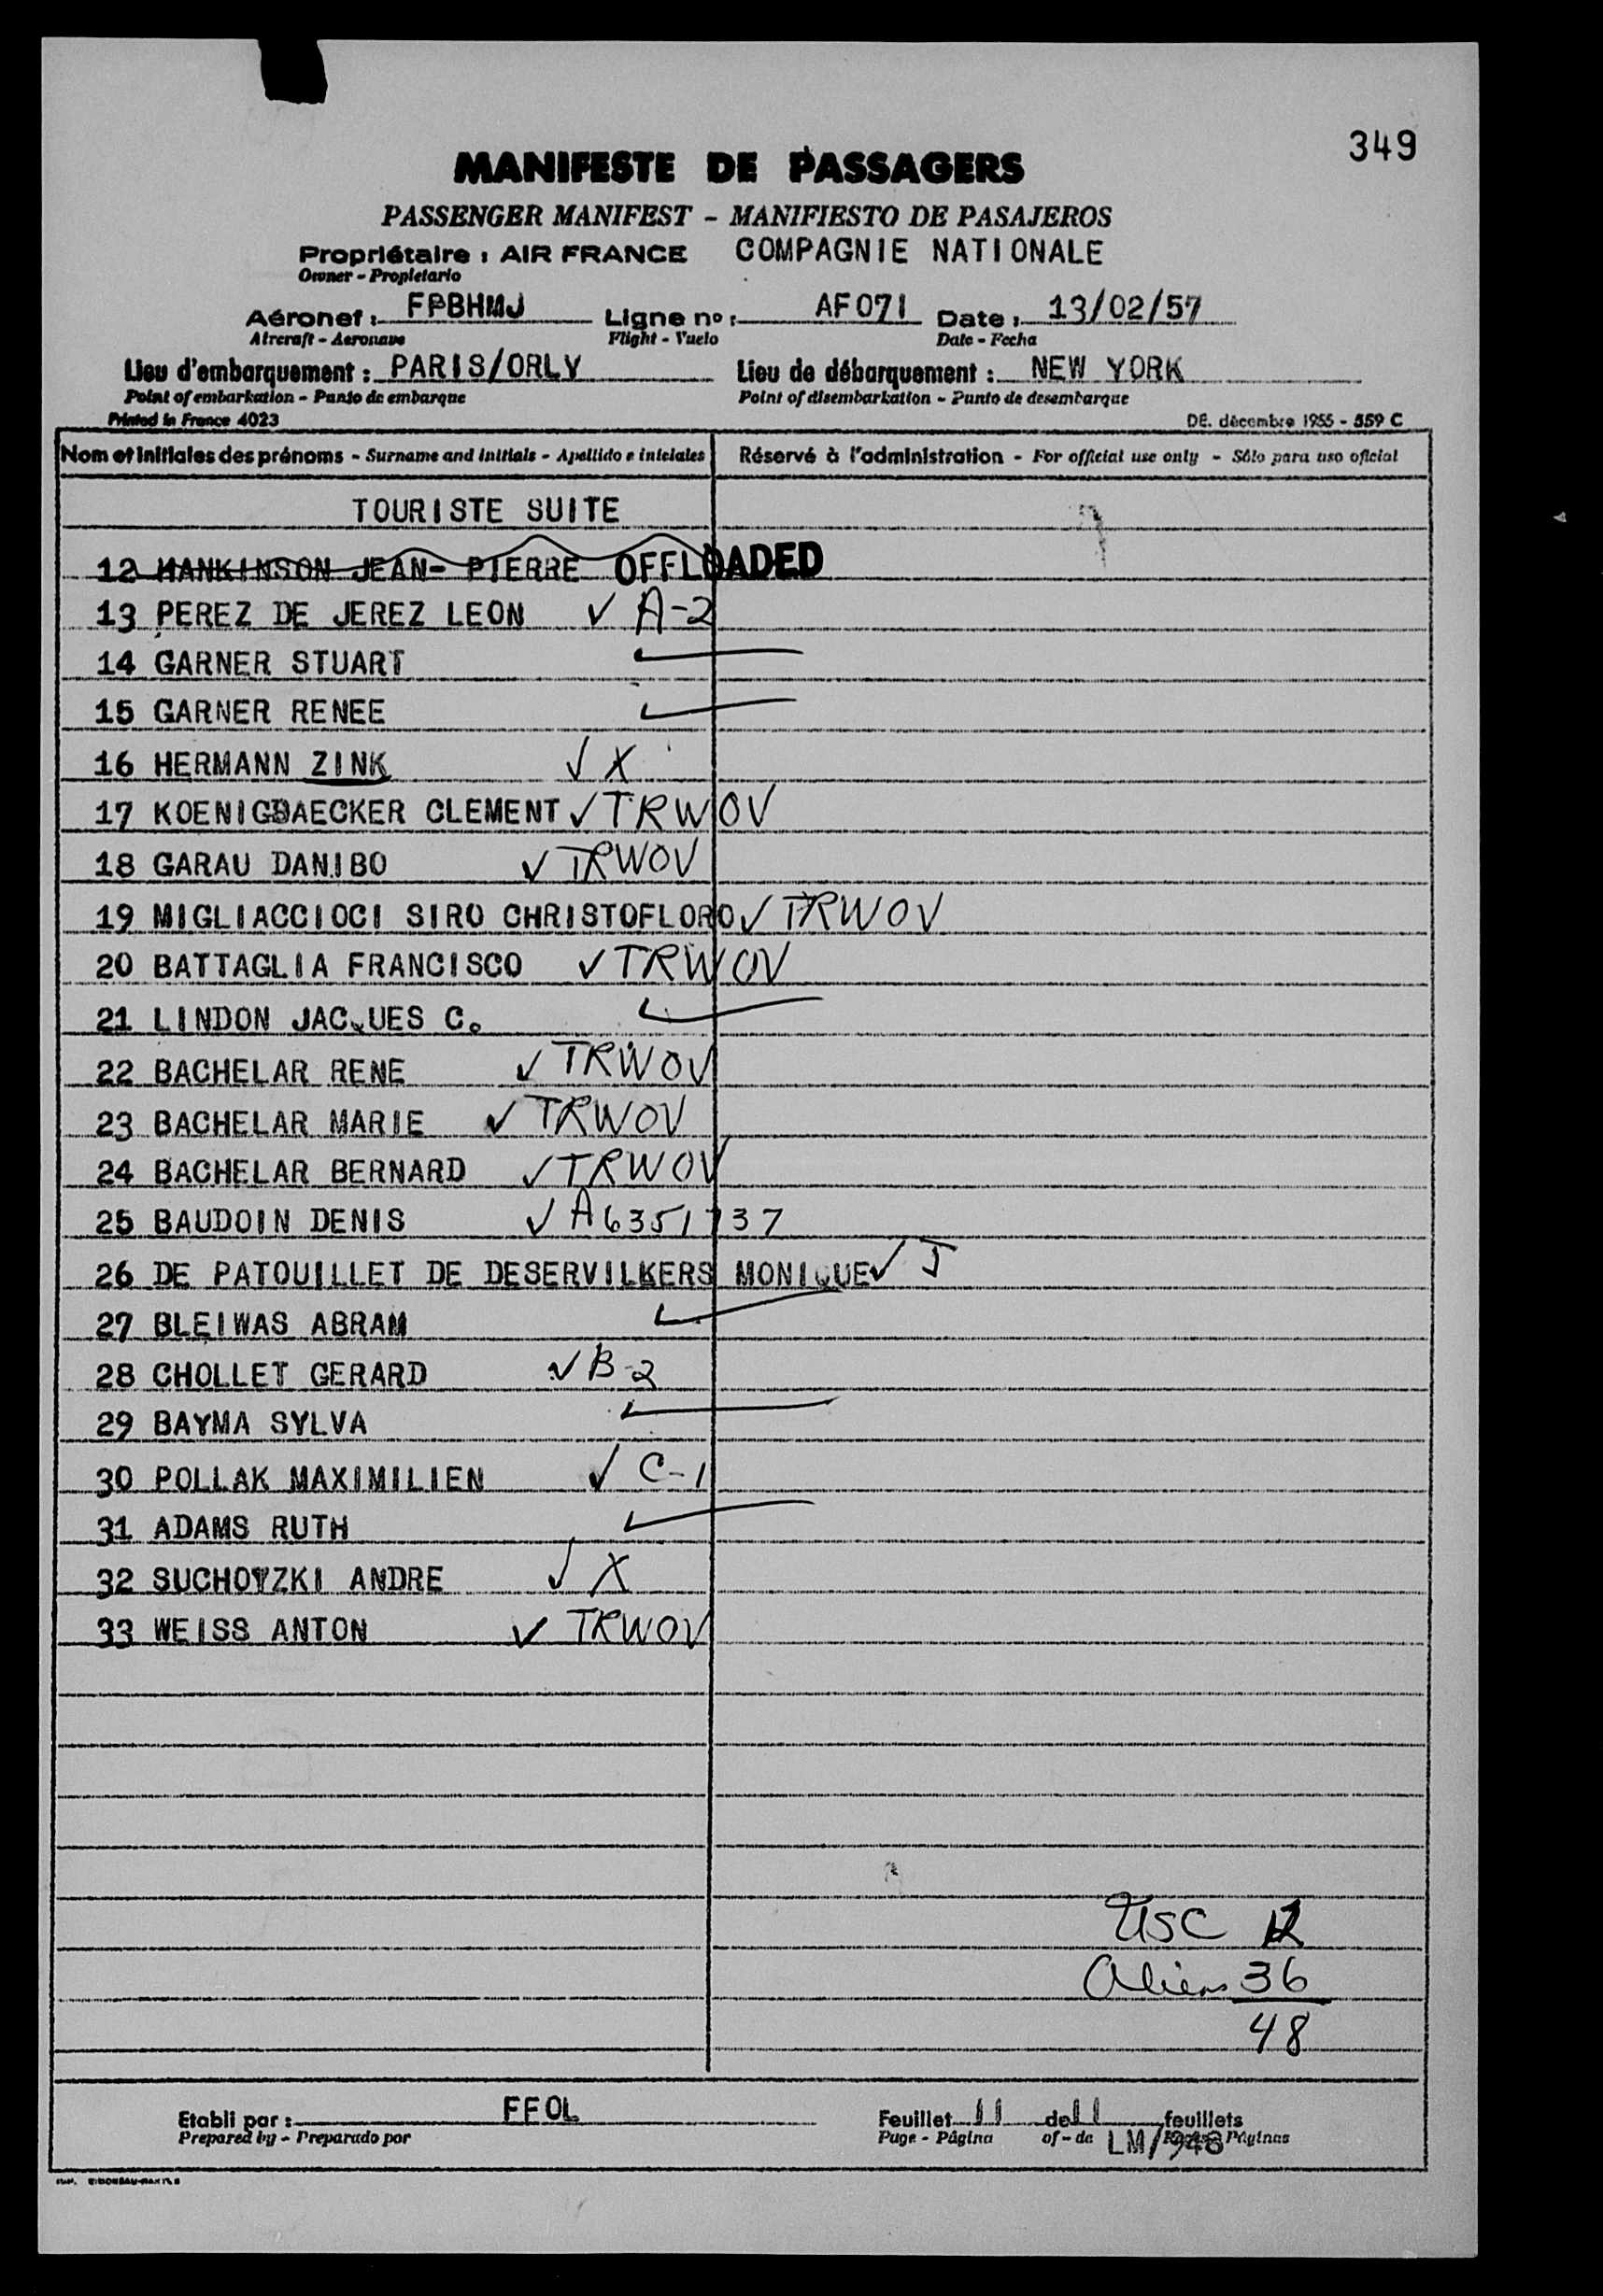 349
MANIFESTE DE PASSAGERS
PASSENGER MANIFEST - MANIFIESTO DE PASAJEROS
Propriétaire : AIR FRANCE COMPAGNIE NATIONALE
Owner - Propietario
Aéronef : FPBHMJ Ligne no : AF071 Date : 13/02/57
Aircraft - Aeronave Flight - Vuelo Date - Fecha
Lieu d'embarquement : PARIS/ORLY Lieu de débarquement : NEW YORK
Point of embarkation - Punto de embarque Point of disembarkation - Punto de desembarque
Printed in France 4023 DE. décembre 1955 - 559 C
Nom et initiales des prénoms - Surname and initials - Apellido e iniciales Réservé à l'administration - For official use only - Sólo para uso oficial
TOURISTE SUITE
12 HANKINSON JEAN- PIERRE OFFLOADED
13 PEREZ DE JEREZ LEON ✓ A-2
14 GARNER STUART ✓
15 GARNER RENEE ✓
16 HERMANN ZINK ✓ X
17 KOENIGBAECKER CLEMENT ✓ TRWOV
18 GARAU DANIBO ✓ TRWOV
19 MIGLIACCIOCI SIRO CHRISTOFLORO ✓ TRWOV
20 BATTAGLIA FRANCISCO ✓ TRWOV
21 LINDON JACQUES C. ✓
22 BACHELAR RENE ✓ TRWOV
23 BACHELAR MARIE ✓ TRWOV
24 BACHELAR BERNARD ✓ TRWOV
25 BAUDOIN DENIS ✓ A6351737
26 DE PATOUILLET DE DESERVILKERS MONIQUE ✓ J
27 BLEIWAS ABRAM ✓
28 CHOLLET GERARD ✓ B-2
29 BAYMA SYLVA ✓
30 POLLAK MAXIMILIEN ✓ C-1
31 ADAMS RUTH ✓
32 SUCHOTZKI ANDRE ✓ X
33 WEISS ANTON ✓ TRWOV
USC 12
Aliens 36
48
Etabli par : FFOL Feuillet 11 de 11 feuillets
Prepared by - Preparado por Page - Página of - de LM/948 Páginas